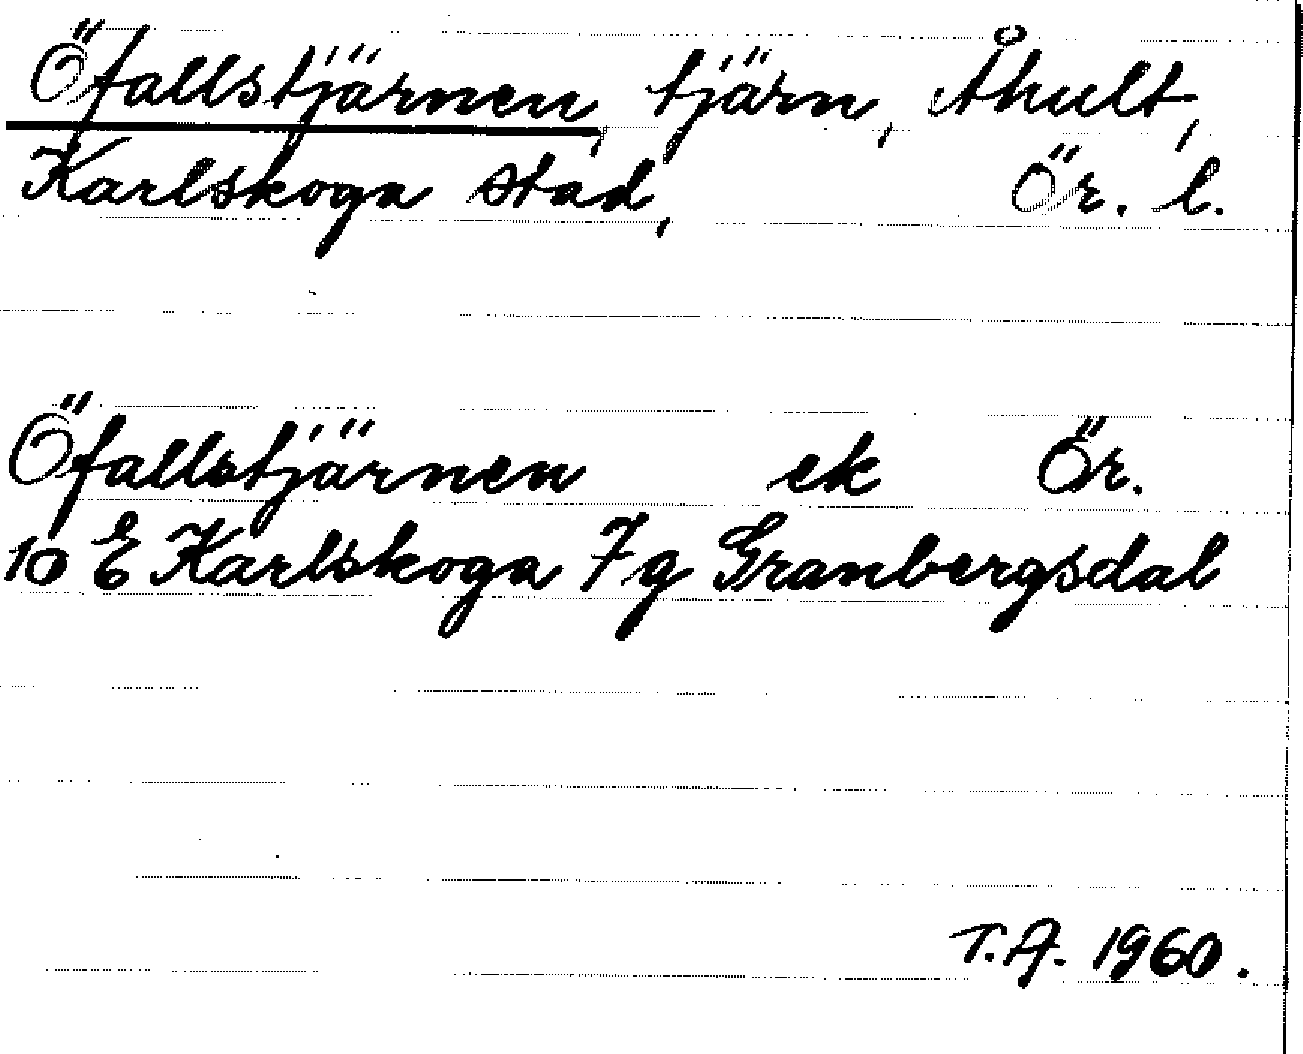 Öfallstjärnen, tjärn, Åhult,
Karlskoga stad, Ör. l.
Öfallstjärnen ek Ör.
10 E Karlskoga 7g Granbergsdal
T.A. 1960.